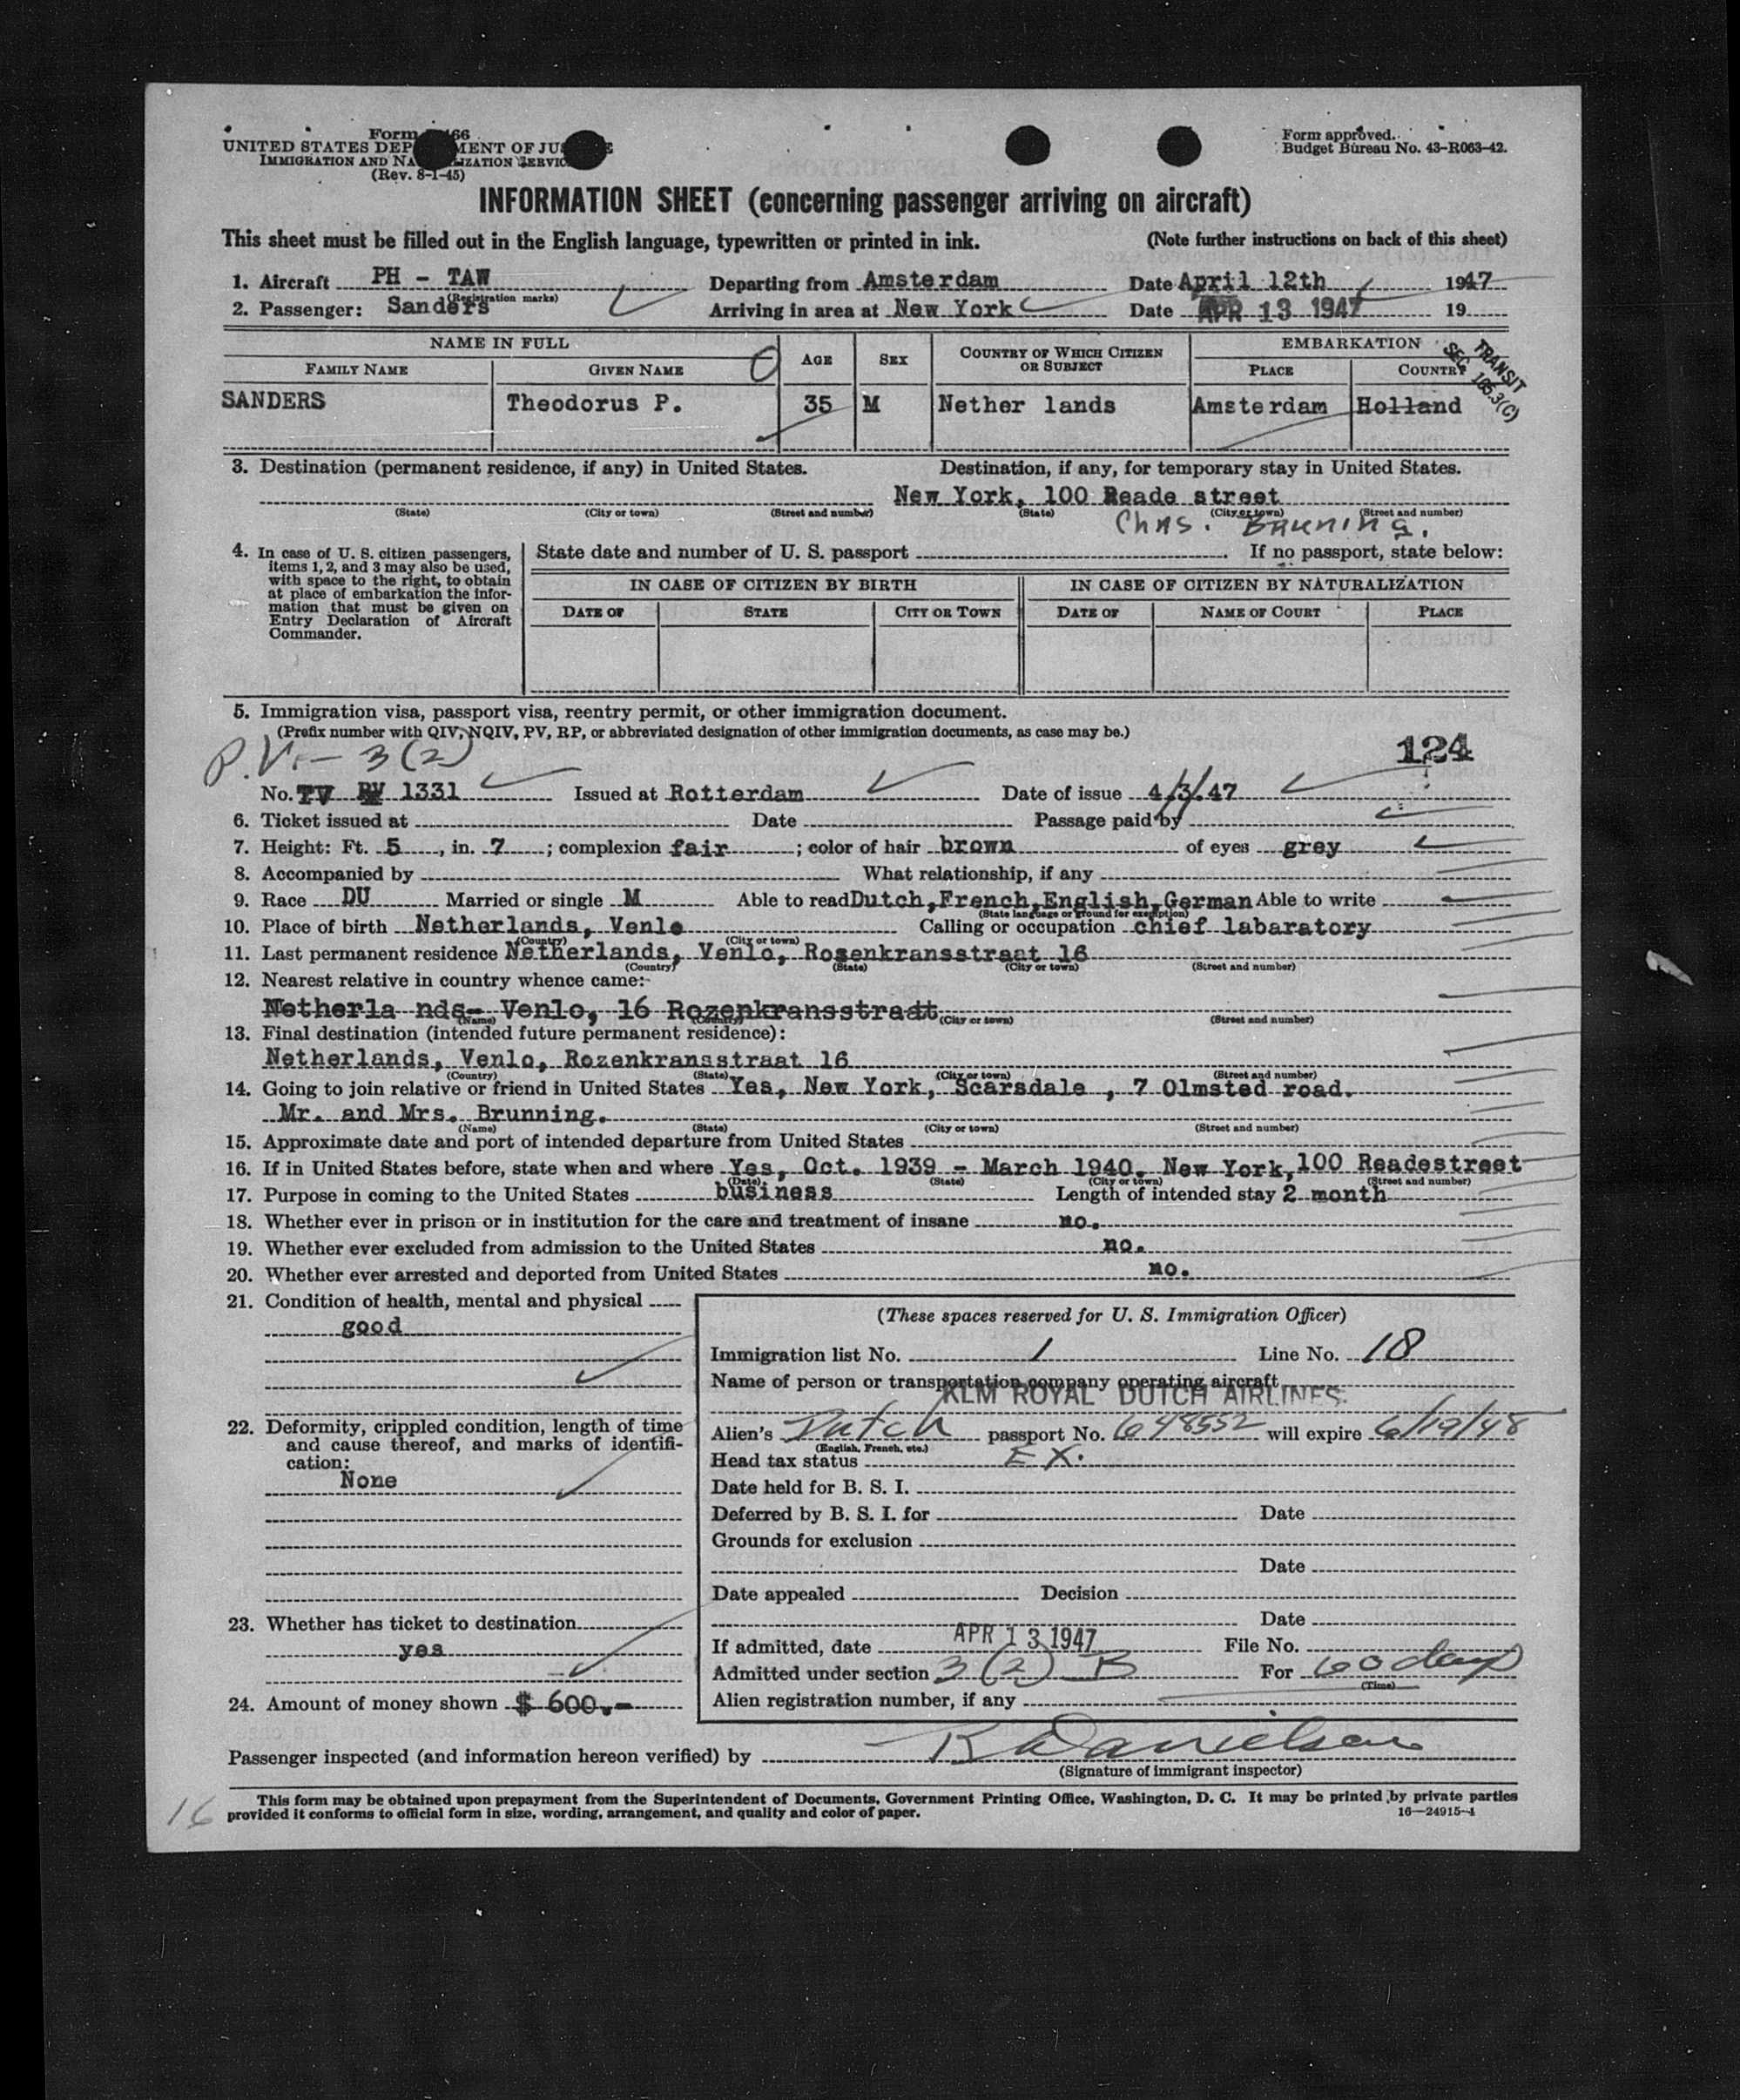 Form 66
UNITED STATES DEP MENT OF JUS E
IMMIGRATION AND NA IZATION SERVIC
(Rev. 8-1-45)
Form approved.
Budget Bureau No. 43-R063-42.
INFORMATION SHEET (concerning passenger arriving on aircraft)
This sheet must be filled out in the English language, typewritten or printed in ink. (Note further instructions on back of this sheet)
1. Aircraft PH - TAW Departing from Amsterdam Date April 12th 1947
(Registration marks)
2. Passenger: Sanders Arriving in area at New York Date APR 13 1947 19
NAME IN FULL AGE SEX COUNTRY OF WHICH CITIZEN OR SUBJECT EMBARKATION
FAMILY NAME GIVEN NAME PLACE COUNTRY
TRANSIT
SEC 165.3(C)
SANDERS Theodorus P. 35 M Nether lands Amsterdam Holland
3. Destination (permanent residence, if any) in United States. Destination, if any, for temporary stay in United States.
New York, 100 Reade street
(State) (City or town) (Street and number) (State) (City or town) (Street and number)
Chas. Bruning.
4. In case of U. S. citizen passengers, items 1, 2, and 3 may also be used, with space to the right, to obtain at place of embarkation the information that must be given on Entry Declaration of Aircraft Commander.
State date and number of U. S. passport If no passport, state below:
IN CASE OF CITIZEN BY BIRTH IN CASE OF CITIZEN BY NATURALIZATION
DATE OF STATE CITY OR TOWN DATE OF NAME OF COURT PLACE
5. Immigration visa, passport visa, reentry permit, or other immigration document.
(Prefix number with QIV, NQIV, PV, RP, or abbreviated designation of other immigration documents, as case may be.)
P.V. - 3(2)
124
No. TV PV 1331 Issued at Rotterdam Date of issue 4/3/47
6. Ticket issued at Date Passage paid by
7. Height: Ft. 5, in. 7; complexion fair; color of hair brown of eyes grey
8. Accompanied by What relationship, if any
9. Race DU Married or single M Able to read Dutch, French, English, German Able to write
(State language or ground for exemption)
10. Place of birth Netherlands, Venlo Calling or occupation chief labaratory
(Country) (City or town)
11. Last permanent residence Netherlands, Venlo, Rosenkransstraat 16
(Country) (State) (City or town) (Street and number)
12. Nearest relative in country whence came:
Netherla nds- Venlo, 16 Rozenkransstraat
(Name) (Country) (City or town) (Street and number)
13. Final destination (intended future permanent residence):
Netherlands, Venlo, Rozenkransstraat 16
(Country) (State) (City or town) (Street and number)
14. Going to join relative or friend in United States Yes, New York, Scarsdale , 7 Olmsted road.
Mr. and Mrs. Brunning.
(Name) (State) (City or town) (Street and number)
15. Approximate date and port of intended departure from United States
16. If in United States before, state when and where Yes, Oct. 1939 - March 1940, New York, 100 Readestreet
(Date) (State) (City or town) (Street and number)
17. Purpose in coming to the United States business Length of intended stay 2 month
18. Whether ever in prison or in institution for the care and treatment of insane no.
19. Whether ever excluded from admission to the United States no.
20. Whether ever arrested and deported from United States no.
21. Condition of health, mental and physical
good
22. Deformity, crippled condition, length of time and cause thereof, and marks of identification:
None
23. Whether has ticket to destination
yes
24. Amount of money shown $ 600.-
(These spaces reserved for U. S. Immigration Officer)
Immigration list No. 1 Line No. 18
Name of person or transportation company operating aircraft
KLM ROYAL DUTCH AIRLINES
Alien's Dutch passport No. 648552 will expire 6/19/48
(English, French, etc.)
Head tax status EX.
Date held for B. S. I.
Deferred by B. S. I. for Date
Grounds for exclusion
Date
Date appealed Decision
Date
If admitted, date APR 13 1947 File No.
Admitted under section 3(2) B For 60 days
(Time)
Alien registration number, if any
Passenger inspected (and information hereon verified) by R Danielsen
(Signature of immigrant inspector)
This form may be obtained upon prepayment from the Superintendent of Documents, Government Printing Office, Washington, D. C. It may be printed by private parties
provided it conforms to official form in size, wording, arrangement, and quality and color of paper. 16—24915-1
16